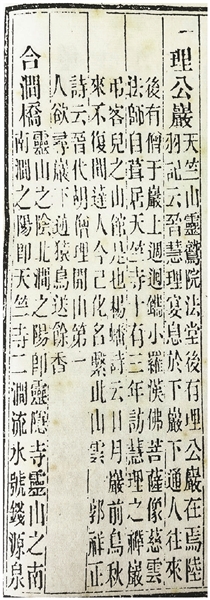 理公巖天竺山靈鷲院法堂後有理公巖在焉陸
羽記云晉慧理宴息於下巖下通人往來
後有僧于巖上週迴鐫小羅漢佛菩薩像慈雲
法師自葺居天竺寺十有三年訪慧理之禪巖
弔客兒之山館是也楊蟠詩云日月巖前鳥秋
來不復聞達人今已化名繫此山雲 郭祥正
詩云晉代胡僧理開山第一
人欲尋巖下迹猿鳥送餘香
合澗橋靈山之陰北澗之陽即靈隱寺靈山之南
南澗之陽即天竺寺二澗流水號錢源泉